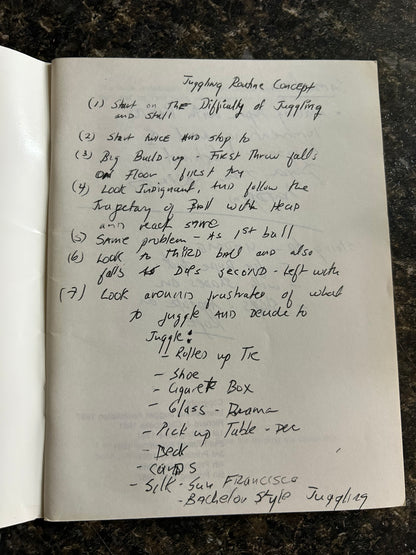 Juggling Routine Concept
(1) Start on THE Difficulty of Juggling
and Stall
(2) Start twice AND stop to
(3) Big Build-up - First Throw falls
on Floor - first try
(4) Look Indignant, AND follow the
Trajectory of Ball with Head
and reach
(5) SAME problem - AS 1st ball
(6) Look to THIRD ball and also
falls AS Does second - Left with
(7) Look around frustrated of what
to juggle AND Decide to
Juggle:
- Rolled up Tie
- Shoe
- Cigarette Box
- Glass -
- Pick up Table -
- Deck
- CARDS
- Silk - San Francisco
- Bachelor Style Juggling